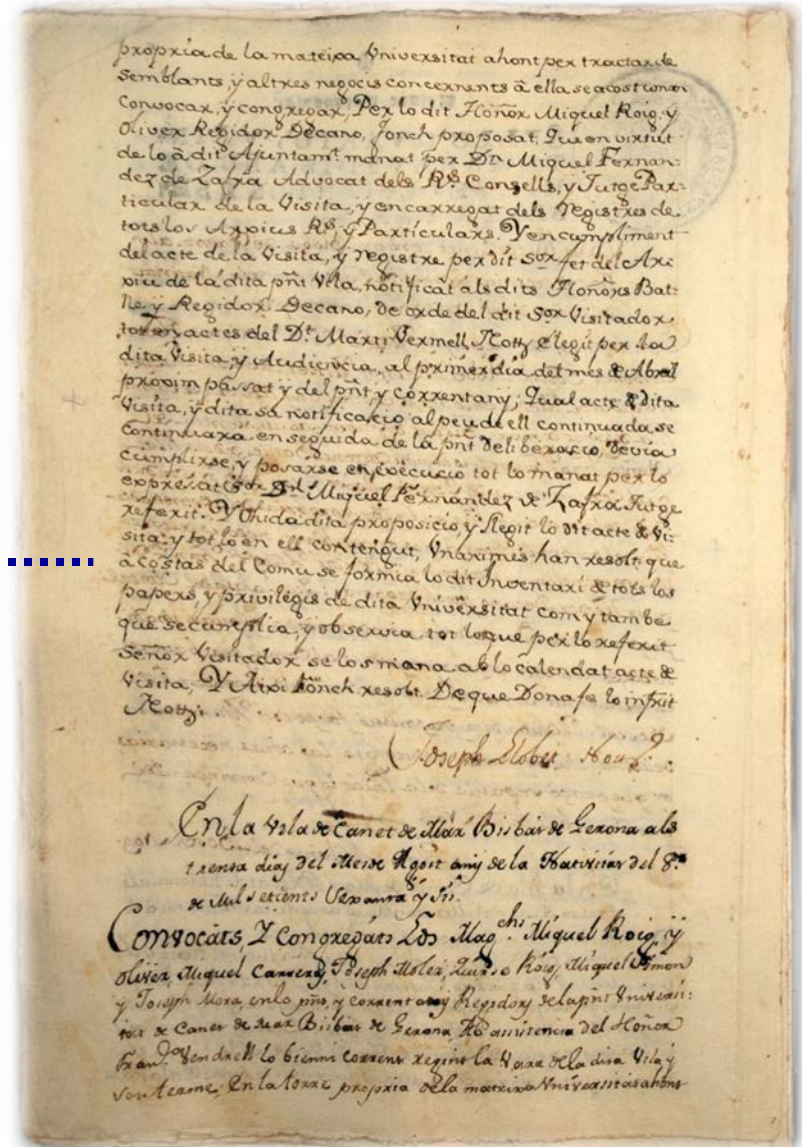 propria de la mateixa Universitat ahont per tractar de
semblants, y altres negocis concernents â ella se acostuman
Convocar, y congregar, Per lo dit Honor Miquel Roig, y
Oliver Regidor Decano, fonch proposat, Que en virtut
de lo â dit Ajuntamt. manat per Dn. Miquel Fernan:
dez de Zafra Advocat dels Rs. Consells, y Jutge Par:
ticular de la Visita, y encarregat dels Registres de
tots los Arxius Rs. y Particulars. Y en cumpliment
del acte de la Visita, y registre per dit Sor. fet del Arx
xiu de la dita pnt Vila, notificat als dits Honors Bat:
lle y Regidor Decano, de orde del dit Sor. Visitador
en actes del Dt. Marti Vermell Notty elegit per la
dita Visita, y Audiencia, al primer dia del mes de Abral
proxim passat y del pnt y corrent any; Qual acte de dita
Visita, y dita sa notificacio al peu de ell continuada se
continuara en seguida de la pnt deliberacio, devia
cumplirse, y posarse en execucio tot lo manat per lo
expresat Sor. Dn. Miquel Fernandez de Zafra Jutge
referit. Y Ohida dita proposicio, y llegit lo dit acte de Vi:
sita, y tot lo en ell contengut, Unanimes han resolt que
â costas del Comu se formia lo dit Inventari de tots los
papers, y privilegis de dita Universitat com y tambe
que se cumplia, y observia tot lo que per lo referit
Señor Visitador se los mana ab lo calendat acte de
Visita, Y Aixi fonch resolt. De que Dona fe lo infrit
Notty.
Joseph Llobet
En la Vila de Canet de Mar Bisbat de Gerona als
trenta dias del Mes de Agost any de la Nativitat del Sr.
de Mil setcents y
Convocats, Y Congregats Los Magchs. Miquel Roig, y
oliver, Miquel Carreras, Joseph Moler, Roig, Miquel Simon
y Joseph Mora, en lo pnt, y corrent any Regidors de la pnt Universi:
tat de Canet de Mar Bisbat de Gerona, Ab assistencia del Honor
Vendrell lo bienni corrent regint la Vara de la dita Vila y
son terme, En la torre propria de la mateixa Universitat ahont